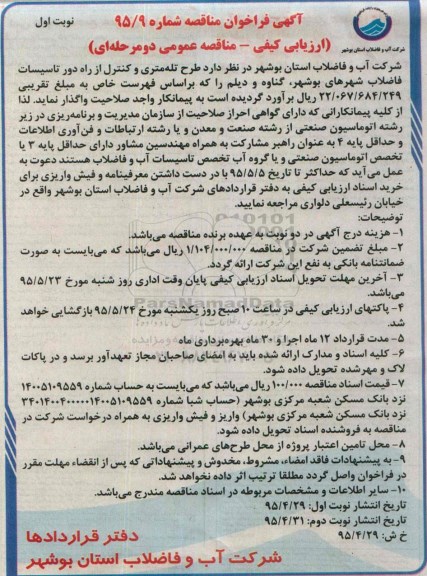 آگهی فراخوان مناقصه شماره ۹۵/۹
نوبت اول
(ارزیابی کیفی - مناقصه عمومی دومرحله‌ای)
شرکت آب و فاضلاب استان بوشهر
شرکت آب و فاضلاب استان بوشهر در نظر دارد طرح تله‌متری و کنترل از راه دور تاسیسات
فاضلاب شهرهای بوشهر، گناوه و دیلم را که براساس فهرست خاص به مبلغ تقریبی
۲۲/۰۶۷/۶۸۴/۲۴۹ ریال برآورد گردیده است به پیمانکار واجد صلاحیت واگذار نماید. لذا
از کلیه پیمانکارانی که دارای گواهی احراز صلاحیت از سازمان مدیریت و برنامه‌ریزی در زیر
رشته اتوماسیون صنعتی از رشته صنعت و معدن و یا رشته ارتباطات و فن‌آوری اطلاعات
و حداقل پایه ۴ به عنوان راهبر مشارکت به همراه مهندسین مشاور دارای حداقل پایه ۳ یا
تخصص اتوماسیون صنعتی و یا گروه آب تخصص تاسیسات آب و فاضلاب هستند دعوت به
عمل می‌آید که حداکثر تا تاریخ ۹۵/۵/۵ با در دست داشتن معرفینامه و فیش واریزی برای
خرید اسناد ارزیابی کیفی به دفتر قراردادهای شرکت آب و فاضلاب استان بوشهر واقع در
خیابان رئیسعلی دلواری مراجعه نمایید.
توضیحات:
۱- هزینه درج آگهی در دو نوبت به عهده برنده مناقصه می‌باشد.
۲- مبلغ تضمین شرکت در مناقصه ۱/۱۰۴/۰۰۰/۰۰۰ ریال می‌باشد که می‌بایست به صورت
ضمانتنامه بانکی به نفع این شرکت ارائه گردد.
۳- آخرین مهلت تحویل اسناد ارزیابی کیفی پایان وقت اداری روز شنبه مورخ ۹۵/۵/۲۳
می‌باشد.
۴- پاکتهای ارزیابی کیفی در ساعت ۱۰ صبح روز یکشنبه مورخ ۹۵/۵/۲۴ بازگشایی خواهد
شد.
۵- مدت قرارداد ۱۲ ماه اجرا و ۳۰ ماه بهره‌برداری ماه
۶- کلیه اسناد و مدارک ارائه شده باید به امضای صاحبان مجاز تعهدآور برسد و در پاکات
لاک و مهرشده تحویل داده شود.
۷- قیمت اسناد مناقصه ۱۰۰/۰۰۰ ریال می‌باشد که می‌بایست به حساب شماره ۱۴۰۰۵۱۰۹۵۵۹
نزد بانک مسکن شعبه مرکزی بوشهر (حساب شبا شماره ۳۴۰۱۴۰۰۴۰۰۰۰۰۱۴۰۰۵۱۰۹۵۵۹
نزد بانک مسکن شعبه مرکزی بوشهر) واریز و فیش واریزی به همراه درخواست شرکت در
مناقصه به فروشنده اسناد تحویل داده شود.
۸- محل تامین اعتبار پروژه از محل طرح‌های عمرانی می‌باشد.
۹- به پیشنهادات فاقد امضاء، مشروط، مخدوش و پیشنهاداتی که پس از انقضاء مهلت مقرر
در فراخوان واصل گردد مطلقا ترتیب اثر داده نخواهد شد.
۱۰- سایر اطلاعات و مشخصات مربوطه در اسناد مناقصه مندرج می‌باشد.
تاریخ انتشار نوبت اول: ۹۵/۴/۲۹
تاریخ انتشار نوبت دوم: ۹۵/۴/۳۱
خ ش: ۹۵/۴/۲۹
دفتر قراردادها
شرکت آب و فاضلاب استان بوشهر
ParsNamadData